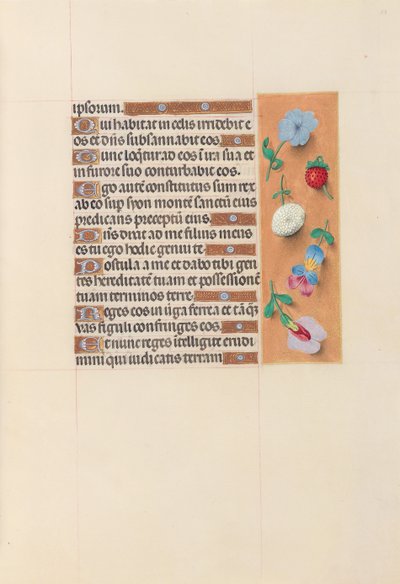 ipsorum.
Qui habitat in celis irridebit e
os et dñs subsannabit eos.
Tunc loq̃tur ad eos ĩ ira sua et
in furore suo conturbabit eos.
Ego autẽ constitutus sum rex
ab eo sup̃ syon montẽ sanctũ eius
predicans preceptũ eius.
Dñs dixit ad me filius meus
es tu ego hodie genui te.
Postula a me et dabo tibi gen
tes hereditatẽ tuam et possessionẽ
tuam terminos terre.
Reges eos in ũga ferrea et tãq̃
vas figuli confringes eos.
Et nunc reges ĩtelligite erudi
mini qui iudicatis terram